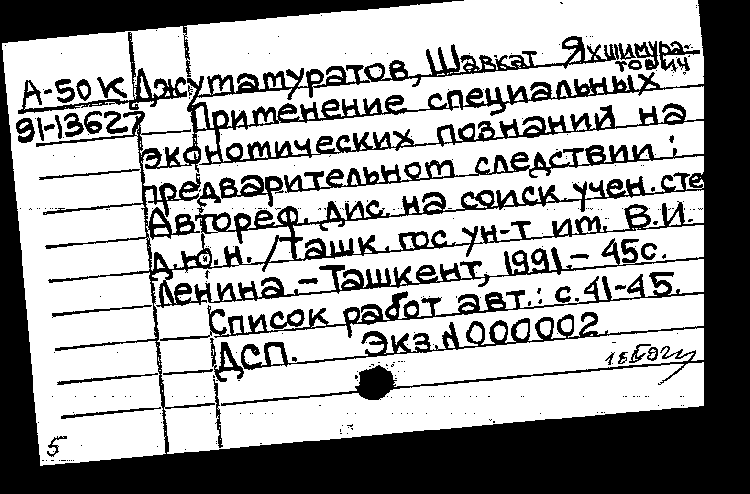 А-50К Джуматуратов, Шавкат Яхшимура-
тович
91-13627 Применение специальных
экономических познаний на
предварительном следствии:
Автореф. дис. на соиск. учен. сте
д.ю.н. /Ташк. гос. ун-т им. В.И.
Ленина.-Ташкент, 1991.- 45с.
Список работ авт.: с.41-45.
ДСП. Экз.N000002.
5